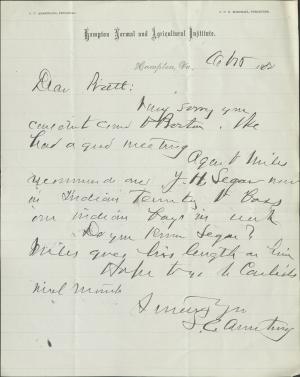 S. C. ARMSTRONG, PRINCIPAL.
Hampton Normal and Agricultural Institute,
Hampton, Va.,
Dear Pratt:
Very sorry you
couldn't come to Boston. We
had a good meeting
Agent Miles
recommends one J H Segar now
in Indian Territory to boss
our indian boys in work
Do you know Segar?
Miles goes his length on him
Hope to go to Carlisle
next month
Sincerely yrs
S. C. Armstrong